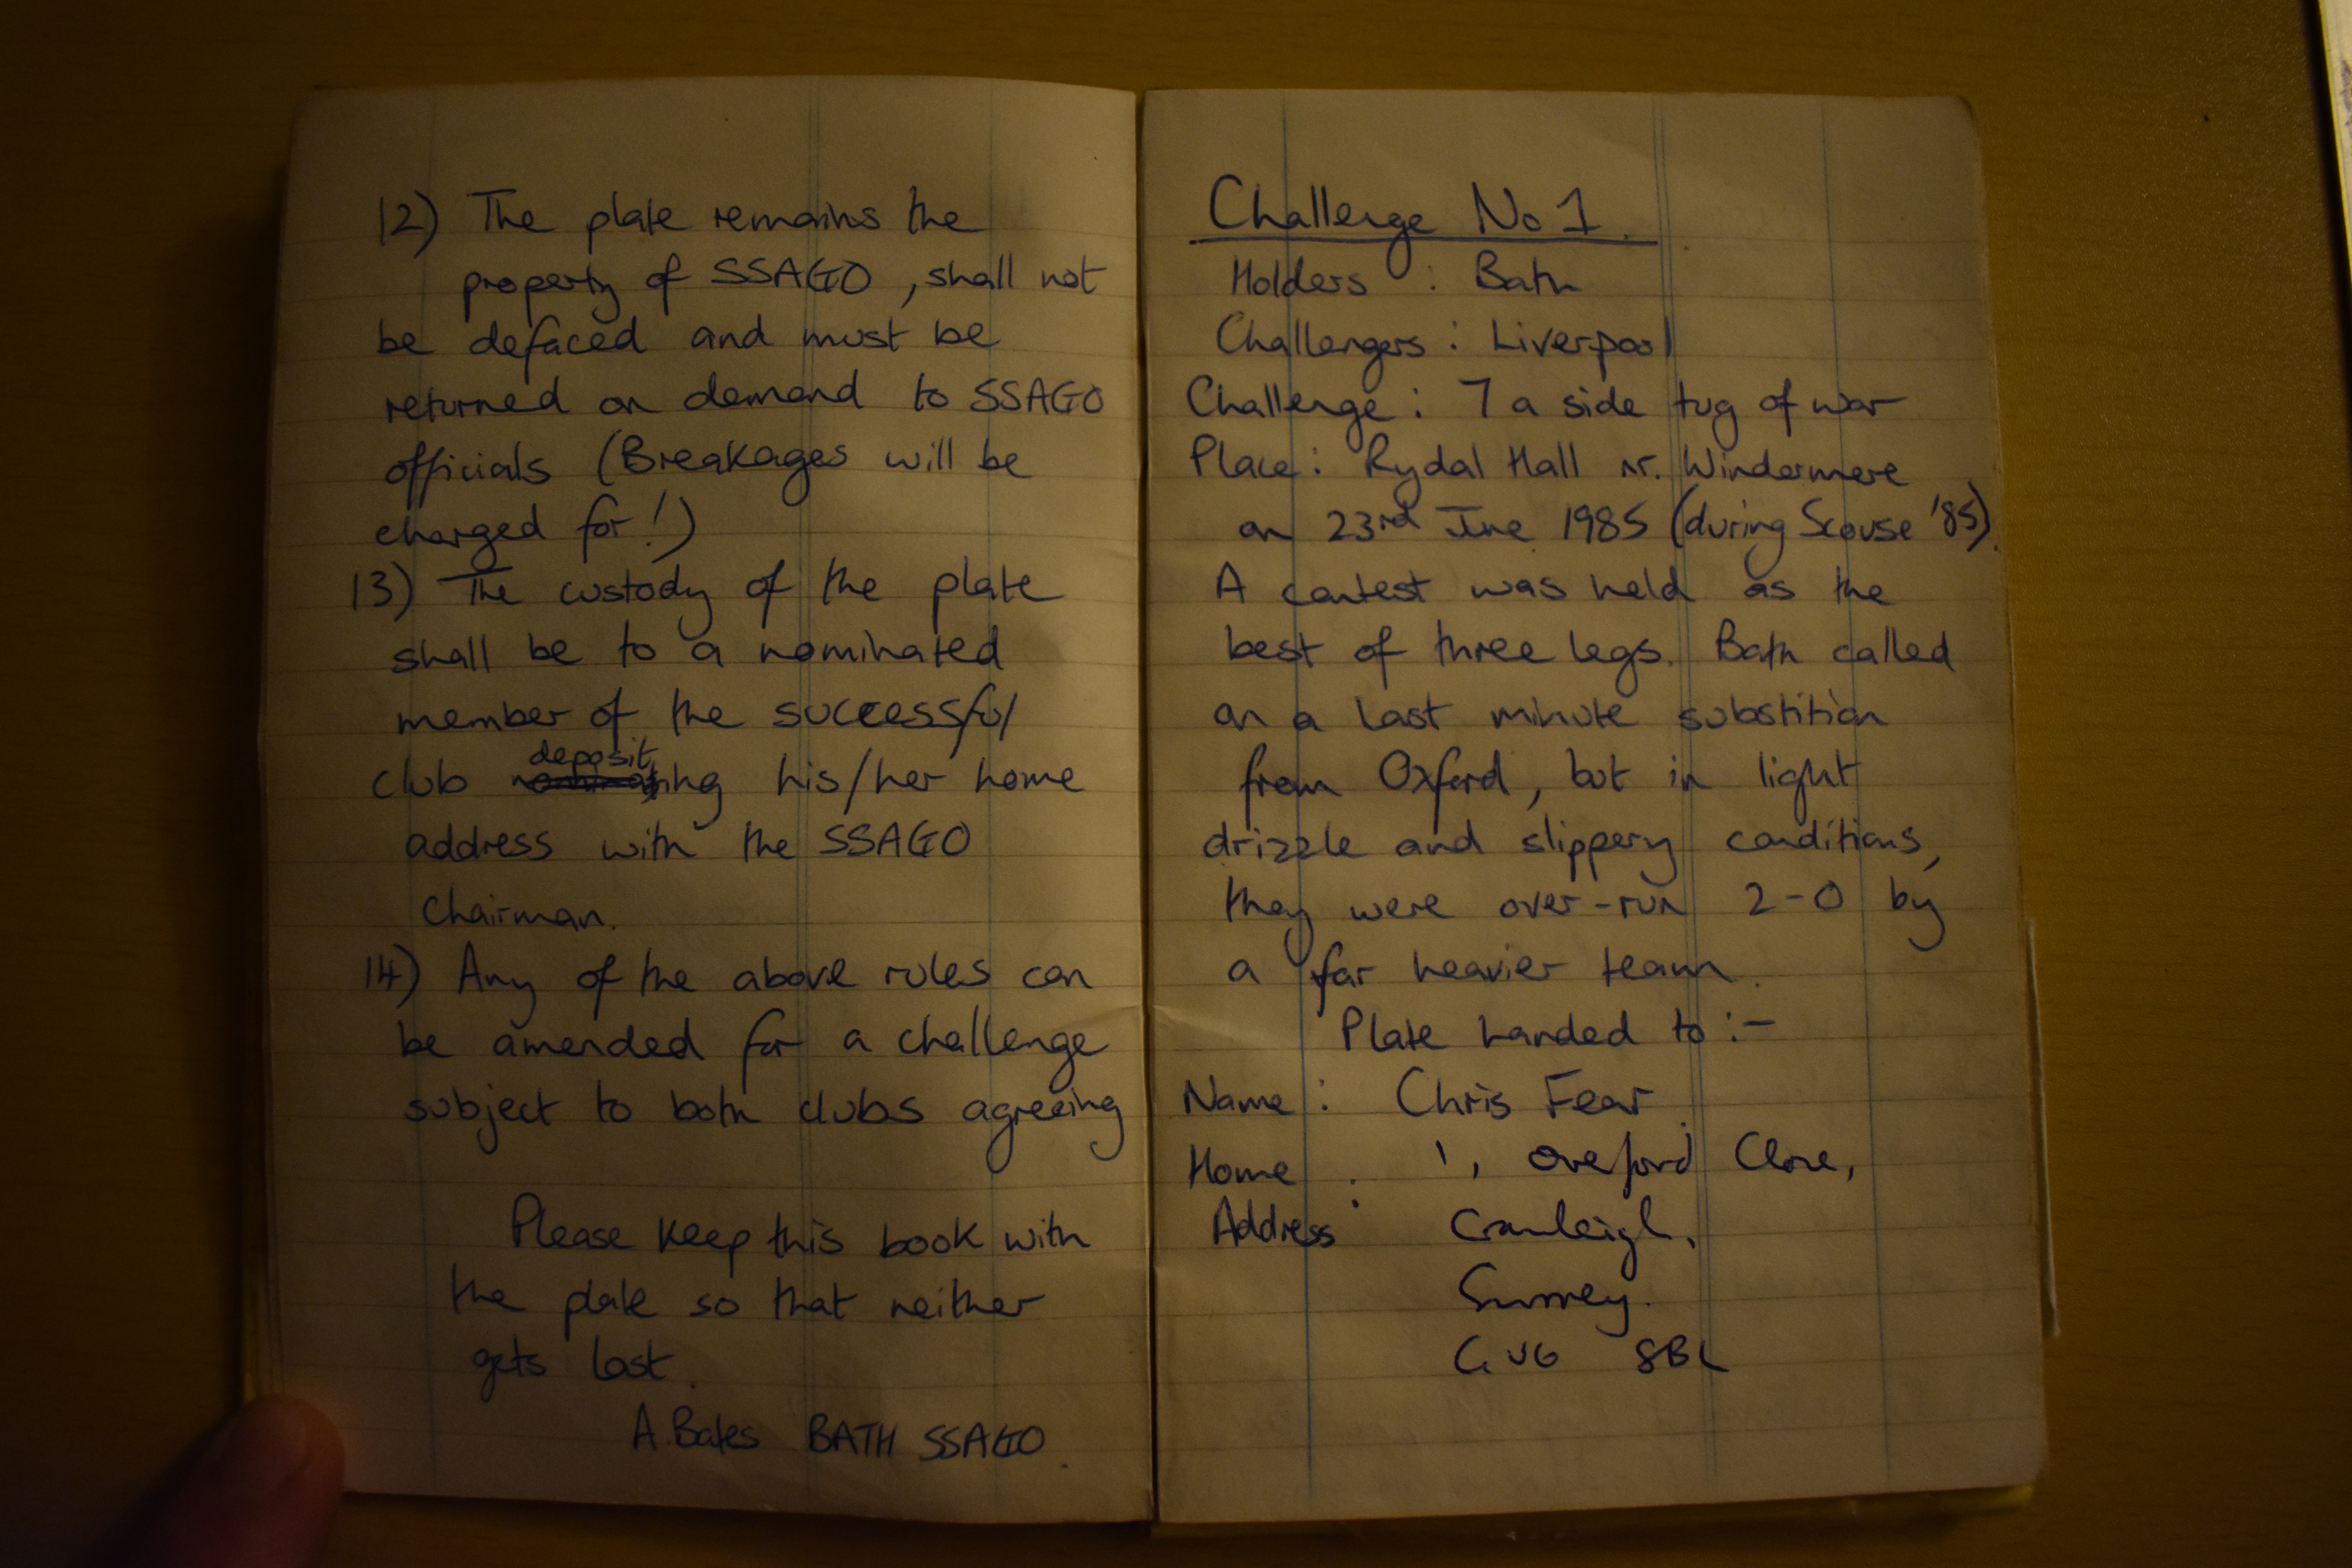 12) The plate remains the
property of SSAGO, shall not
be defaced and must be
returned on demand to SSAGO
officials (Breakages will be
charged for!)
13) The custody of the plate
shall be to a nominated
member of the successful
deposit
club ing his/her home
address with the SSAGO
Chairman.
14) Any of the above rules can
be amended for a challenge
subject to both clubs agreeing
Please keep this book with
the plate so that neither
gets lost.
A. Bates BATH SSAGO.
Challenge No 1.
Holders : Bath
Challengers : Liverpool
Challenge : 7 a side tug of war
Place : Rydal Hall nr. Windermere
on 23rd June 1985 (during Scouse '85).
A contest was held as the
best of three legs. Bath called
on a last minute substition
from Oxford, but in light
drizzle and slippery conditions,
they were over-run 2-0 by
a far heavier team.
Plate handed to :-
Name : Chris Fear
Home : 1, Close,
Address Cranleigh,
Surrey.
GU6 8BL